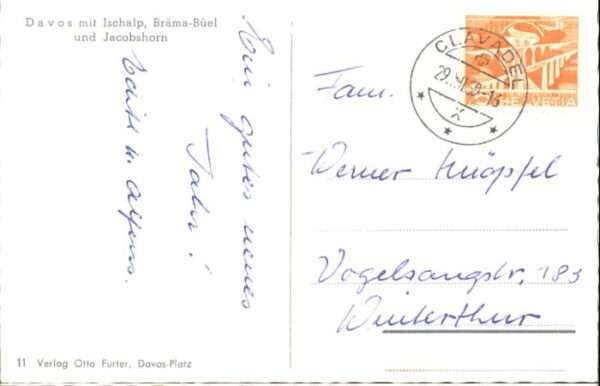 Davos mit Ischalp, Bräma-Büel
und Jacobshorn
Ein gutes neues
Jahr!
u. Alfons.
CLAVADEL
HELVETIA
Fam.
Werner Knöpfel
Vogelsangstr. 183
Winterthur
11 Verlag Otto Furter, Davos-Platz